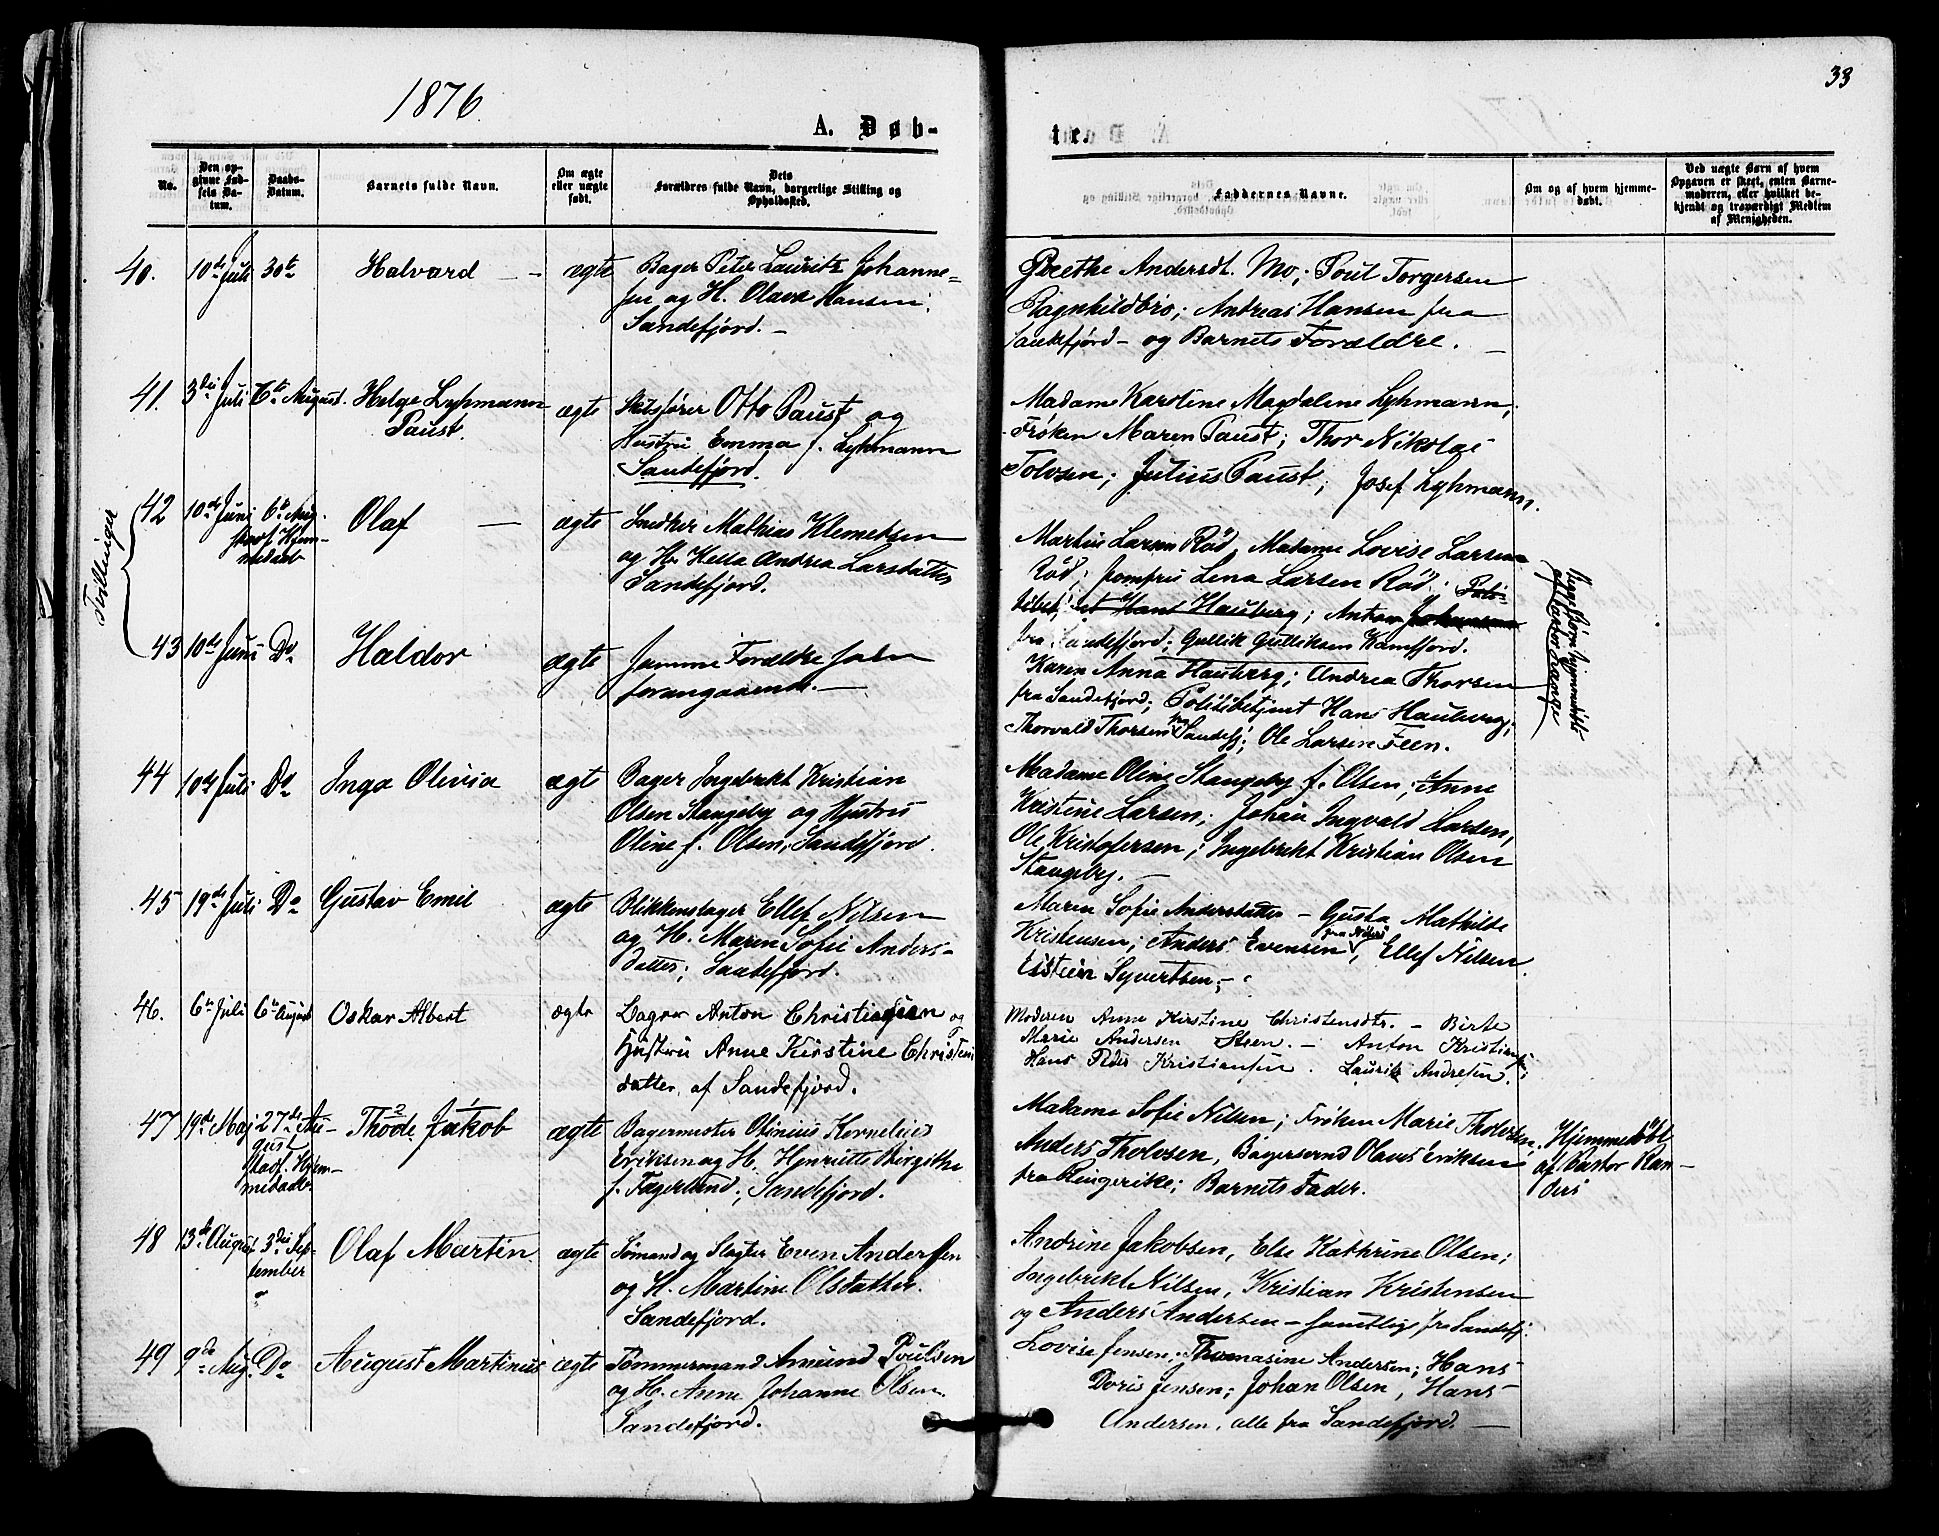 1876.
33
A. Døb-
te.
No.
Den op-
givne Fød-
sels Da-
tum.
Daabs-
Datum.
Barnets fulde Navn.
Om ægte
eller uægte
født.
Dets
Forældres fulde Navn, borgerlige Stilling og
Opholdssted.
Faddernes Navne.
Om og af hvem hjemme-
døbt.
Ved uægte Børn af hvem
Opgaven er skeet, enten Barne-
moderen, eller hvilket be-
kjendt og troværdigt Medlem
af Menigheden.
40. 10de Juli 30te Halvard - - ægte
Bager Peter Lauritz Johanne-
sen og H. Olava Hansen;
Sandefjord. -
Grethe Andersdt. Mo; Poul Torgersen
Ragnhildbro; Andreas Hansen fra
Sandefjord - og Barnets Forældre. -
41. 3die Juli 6te August. Helge Lyhmann
Paust.
ægte
Skibsfører Otto Paust og
Hustru Emma f. Lyhmann
Sandefjord.
Madame Karoline Magdalene Lyhmann,
Frøken Maren Paust; Thor Nikolai
Tolvsen; Julius Paust; Josef Lyhmann.
Tvillinger
42 10de Juni 6te Aug.
stadf. Hjem-
medaab
Olaf - ægte
Snedker Mathias Klemetsen
og H. Helta Andrea Larsdatter
Sandefjord.
Martin Larsen Rød, Madame Lovise Larsen
Rød; Jomfru Lena Larsen Rød; Poli-
tibetjent Hans Hauberg; Anton Johannsen
fra Sandefjord; Gullik Gulliksen Kamfjord.
Begge Børn hjemmedøbt
af Pastor Lange
43 10de Juni Do Haldor ægte
Samme Forældre som
forangaaende. -
Karen Anna Hauberg; Andrea Thorsen
fra Sandefjord; Politibetjent Hans Hauberg;
Thorvald Thorsen fra Sandefj; Ole Larsen Feen.
44 10de Juli Do Inga Olivia ægte
Bager Ingebrekt Kristian
Olsen Stangeby og Hustru
Oline f. Olsen, Sandefjord.
Madame Oline Stangeby f. Olsen; Anne
Kristine Larsen; Johan Ingvald Larsen,
Ole Kristofersen; Ingebrekt Kristian Olsen
Stangeby. -
45 19de Juli Do Gustav Emil ægte
Blikkenslager Ellef Nilsen
og H. Maren Sofie Anders-
datter; Sandefjord.
Maren Sofie Andersdatter - Gusta Mathilde
Kristensen; Anders Evensen, Ellef Nilsen
Eistein Syvertsen; -
46. 6te Juli 6te August Oskar Albert ægte
Bager Anton Christiansen og
Hustru Anne Kirstine Christens
datter, af Sandefjord.
Moderen Anne Kirstine Christensdtr. - Birte
Marie Andersen Steen. - Anton Kristiansen;
Hans Peder Kristiansen. Laurits Andresen.
47 19de Maj 27de Au-
gust
stadf. Hjem-
medaab.
2 1
Thode Jakob ægte
Bagermester Olinius Kornelius
Eriksen og H. Henriette Birgithe
f. Fagerlund; Sandefjord.
Madame Sofie Nilsen; Frøken Marie Tholvsen,
Anders Tholvsen, Bagersvend Olaves Eriksen
fra Ringerike; Barnets Fader.
Hjemmedøbt
af Pastor Ran-
ders
48 13de August 3die Sep-
tember
Olaf Martin ægte
Sømand og Slagter Even Andersen
og H. Martine Olsdatter.
Sandefjord.
Andrine Jakobsen, Else Kathrine Olsen;
Ingebrekt Nilsen, Kristian Kristensen
og Anders Andersen - samtlige fra Sandefj.
49 9de Aug. Do August Martinus ægte
Tømmermand Amund Poulsen
og H. Anne Johanne Olsen
Sandefjord.
Lovise Jensen, Thomasine Andersen; Hans
Doris Jensen; Johan Olsen, Hans
Andersen, alle fra Sandefjord. -